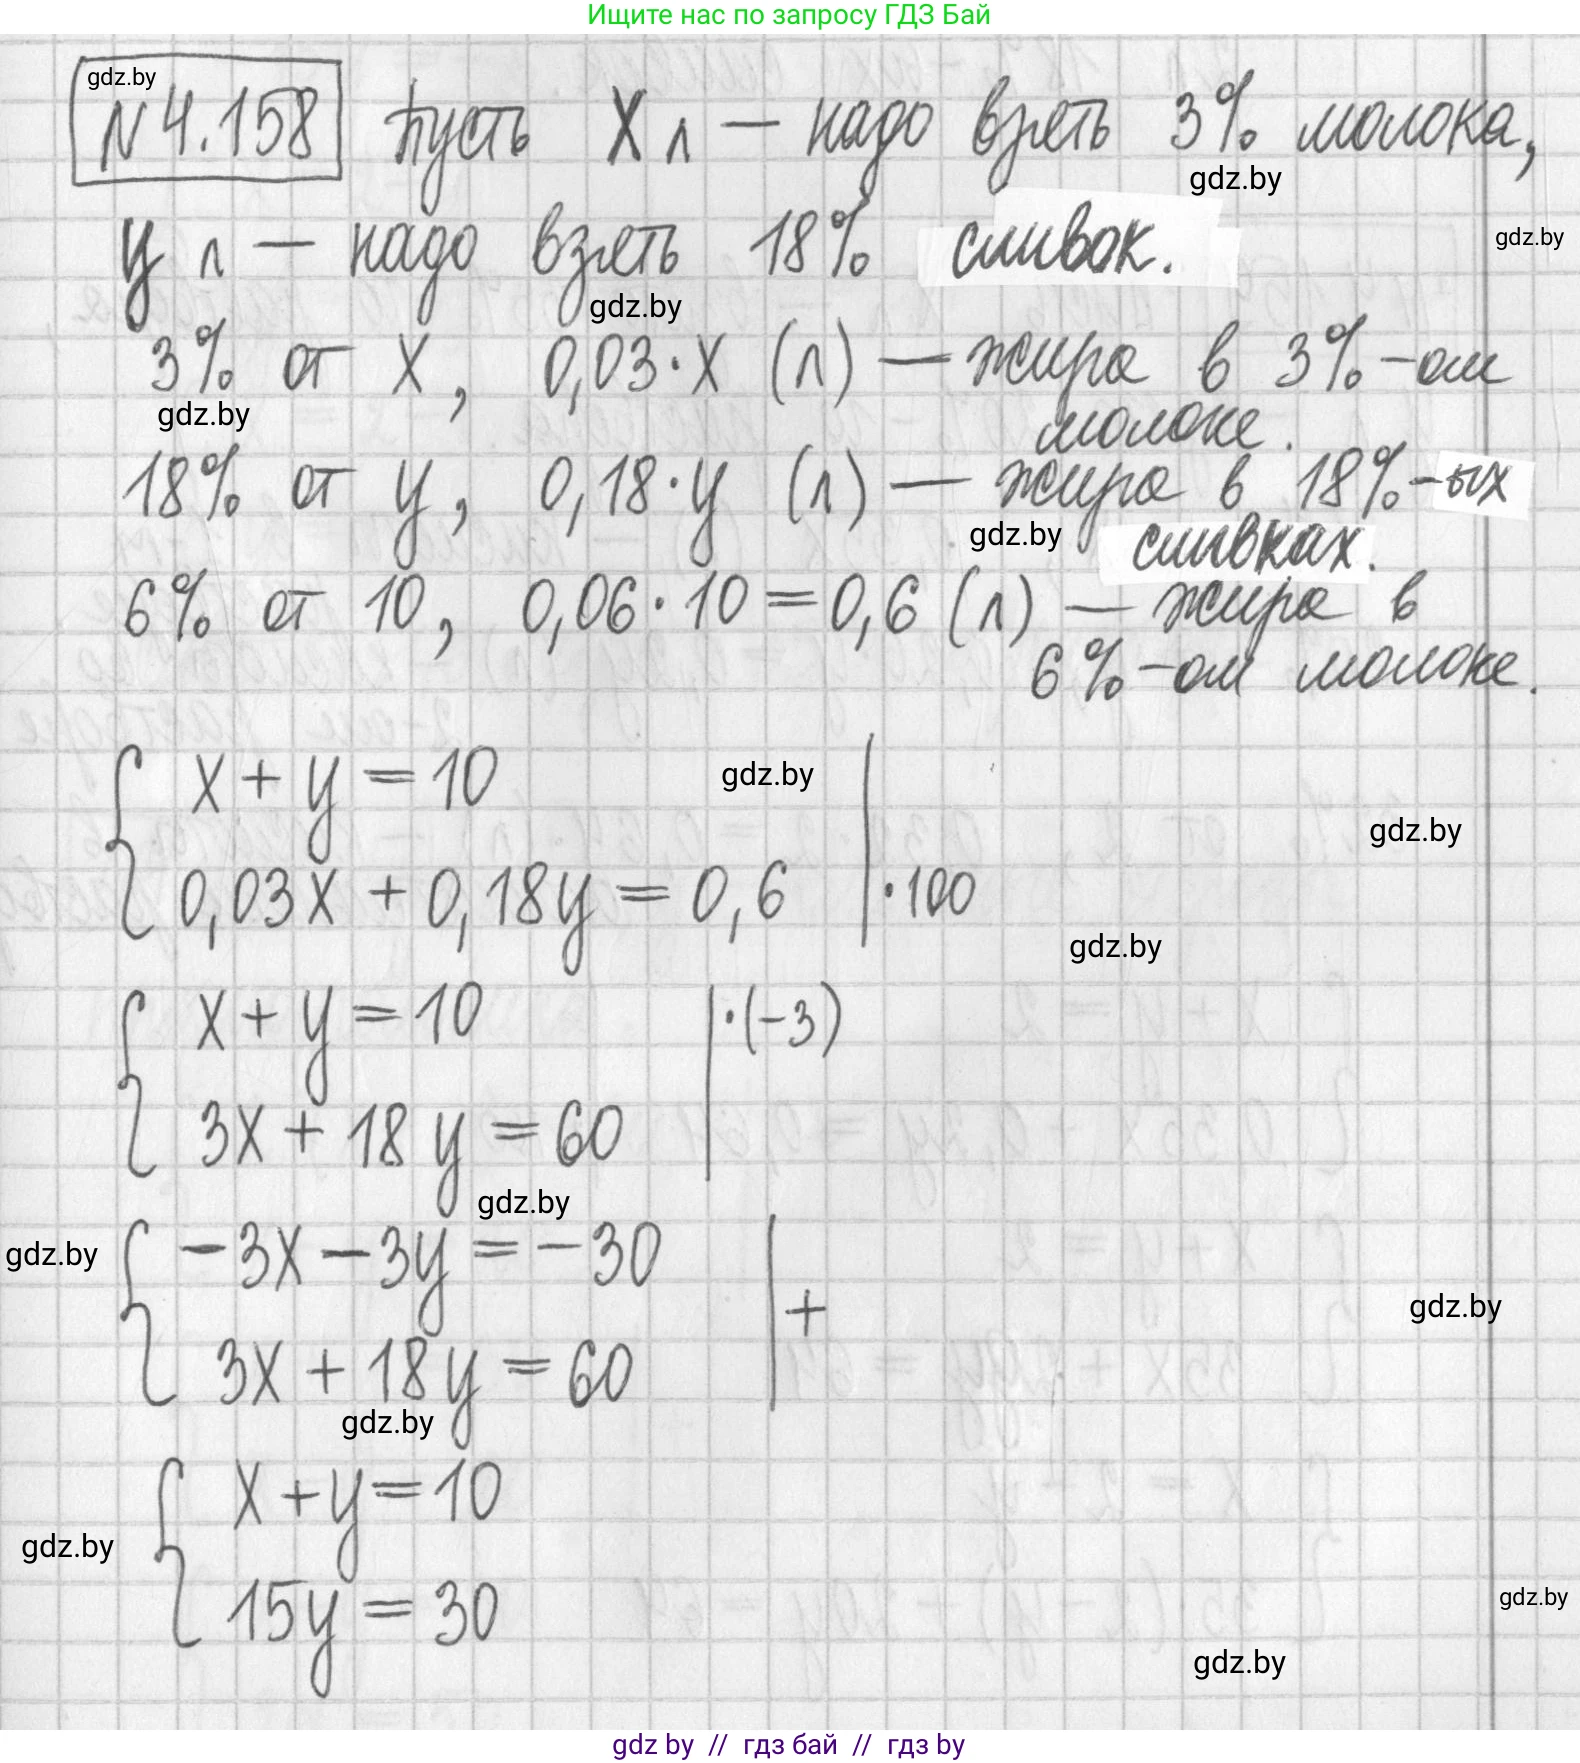 Ищите нас по запросу ГДЗ Бай
gdz.by
N 4.158 Пусть x л — надо взять 3% молока,
gdz.by
y л — надо взять 18% сливок.
gdz.by
gdz.by
3% от x, 0,03·x (л) — жира в 3%-ом
gdz.by
молоке.
18% от y, 0,18·y (л) — жира в 18%-ых
gdz.by
сливках.
6% от 10, 0,06·10=0,6 (л) — жира в
6%-ом молоке.
x + y = 10
gdz.by
gdz.by
0,03x + 0,18y = 0,6 | ·100
gdz.by
x + y = 10 | ·(-3)
3x + 18y = 60
gdz.by
gdz.by
-3x - 3y = -30
+
gdz.by
3x + 18y = 60
gdz.by
x + y = 10
gdz.by
15y = 30
gdz.by
gdz.by
gdz by // гдз бай // гдз by